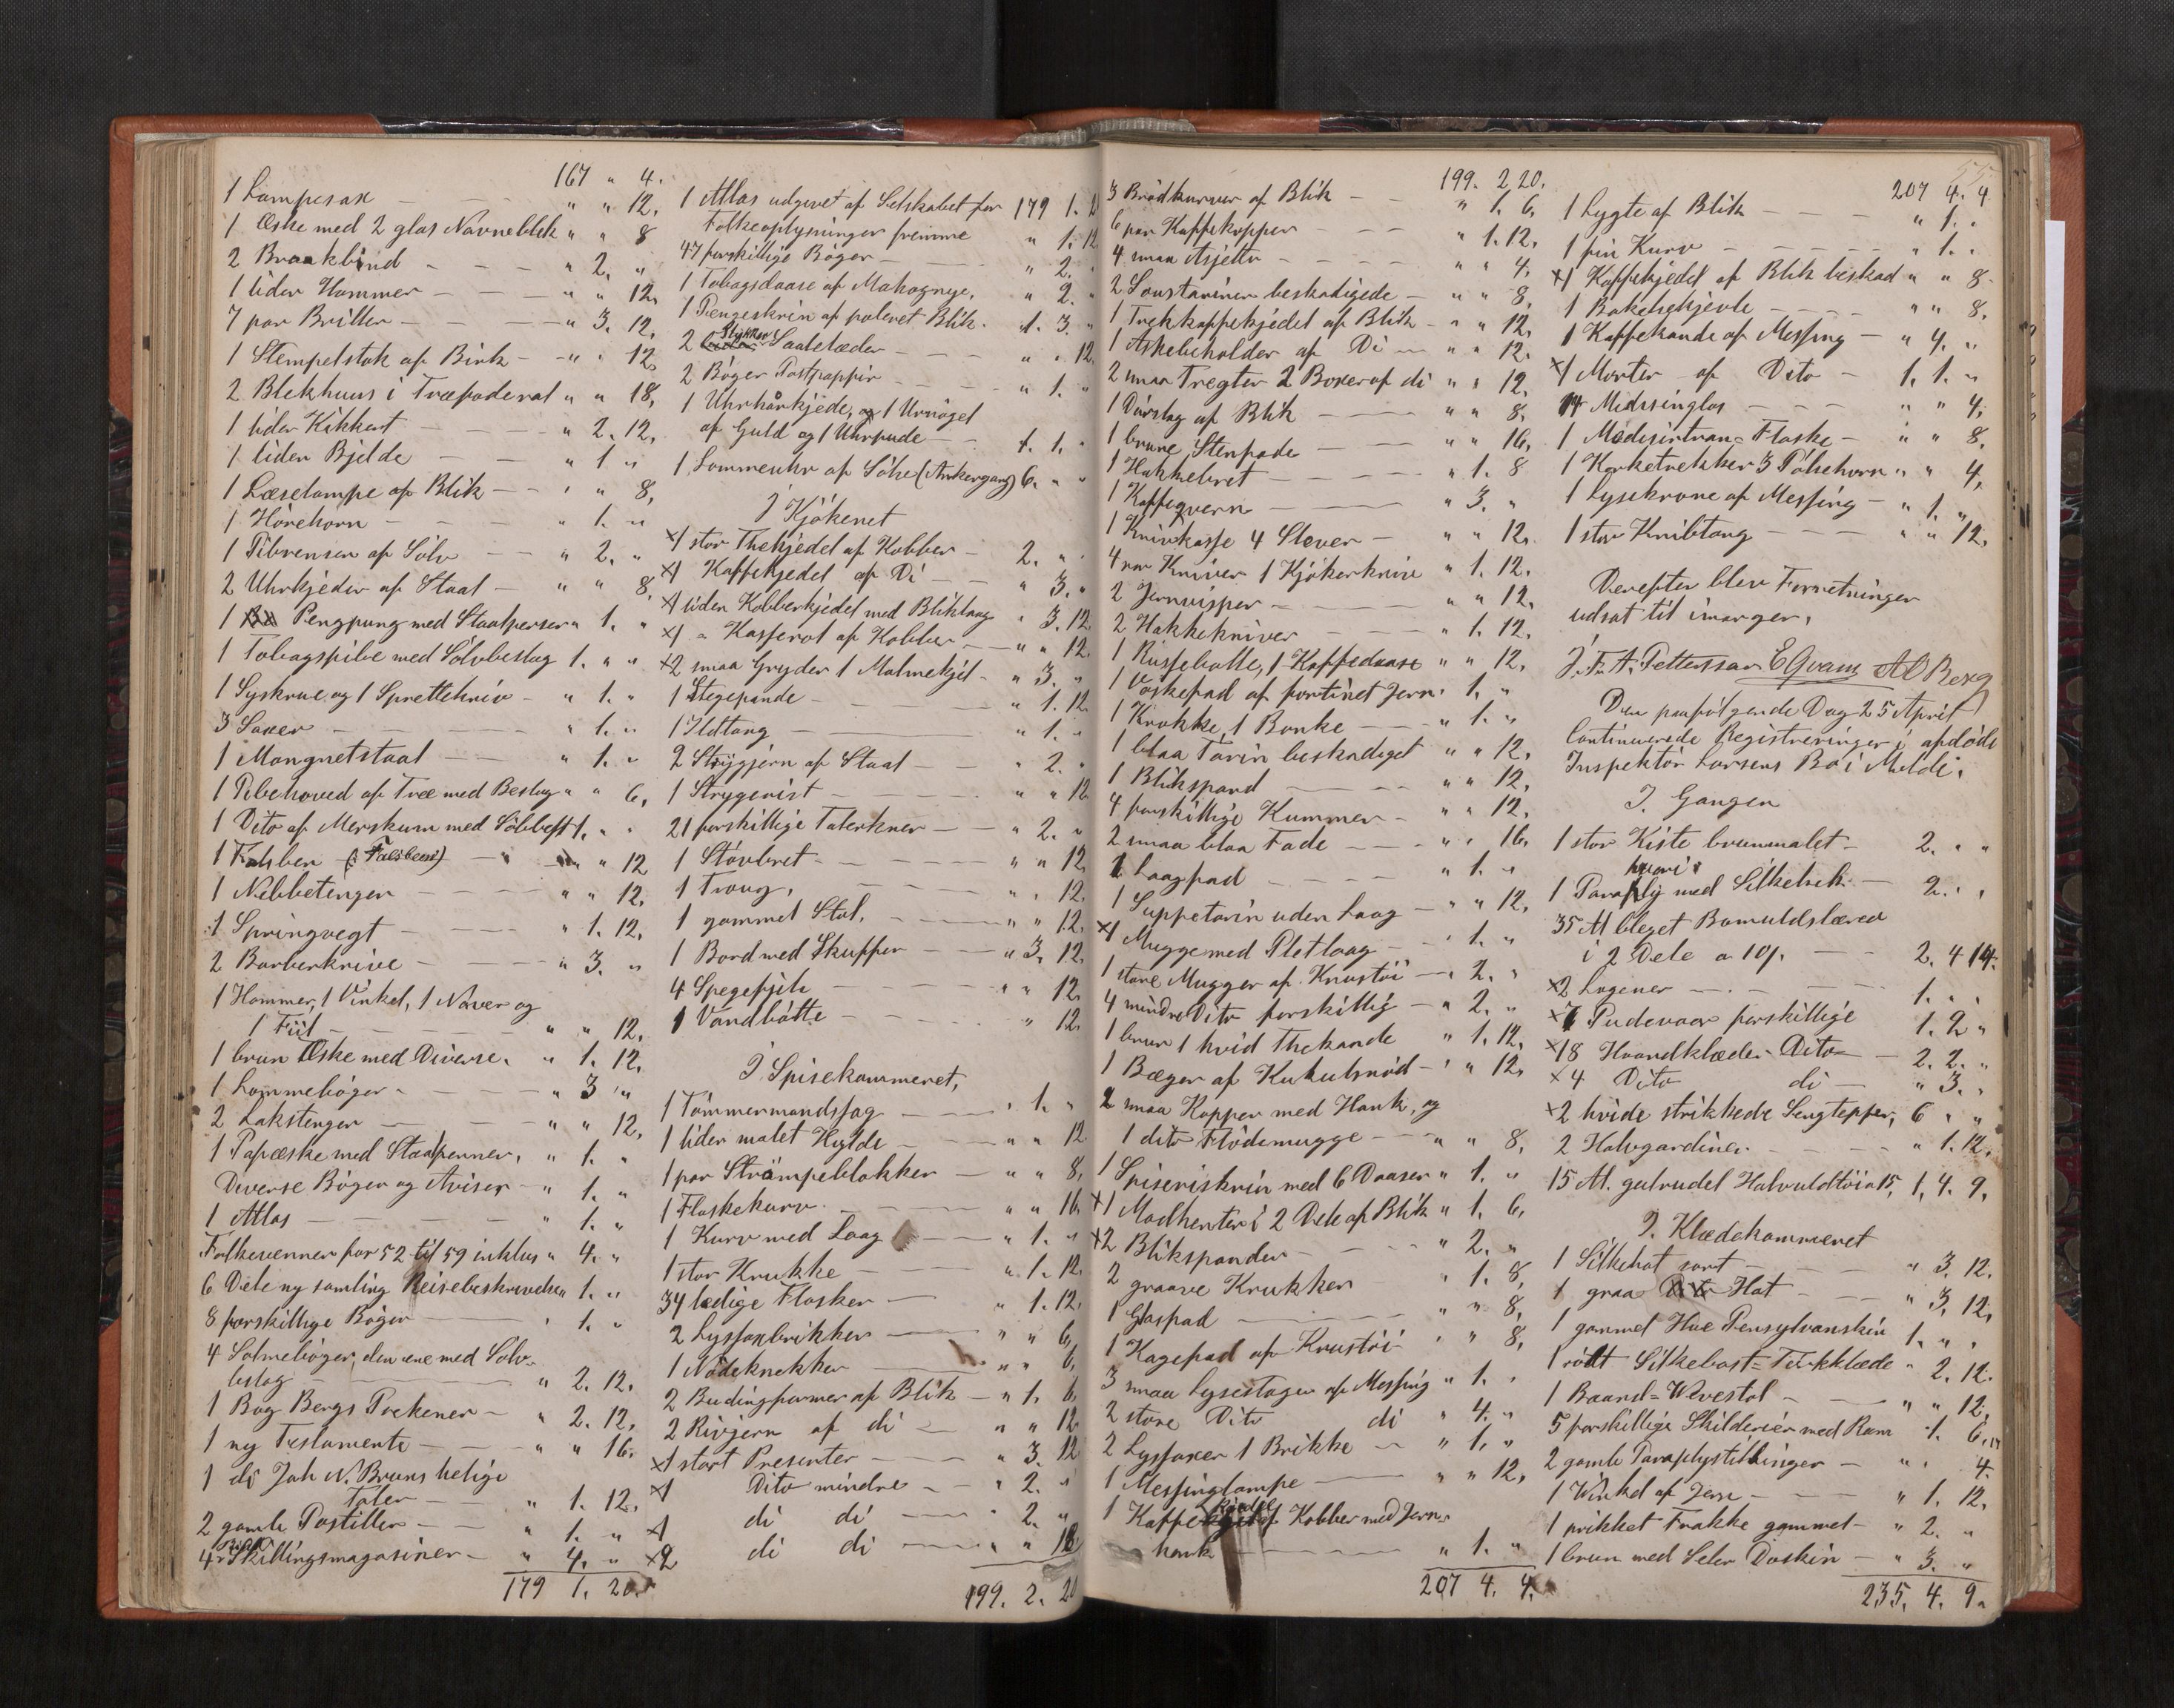 167 " 4.
1 Lampesax — " " 12.
1 Æske med 2 glas Navneblek " " 8
2 Braakbind — " 2. "
1 liden Hammer — " " 12.
7 par Briller — " 3. 12.
1 Stempelstok af Birk — " " 12.
2 Blekhuus i Træfoderal " " 18.
1 liden Kikkert — " 2. 12.
1 liden Bjelde — " 1 "
1 Læselampe af Blik — " " 8.
1 Hörehorn — " 1. "
1 Pibrenser af Sölv — " 2. "
2 Uhrkjeder af Staal — " " 8.
1 Pengpung med Staalperser " 1. "
1 Tobagspibe med Sölvbeslag 1. " "
1 Syskrue og 1 Sprettekniv — " 1. "
3 Saxer — " 1. "
1 Mangnetstaal — " 1. "
1 Pibehoved af Træ med Beslag " " 6.
1 Dito af Merskum med Sölvbesl 1. " "
1 Falsben (: Falsbeen) — " " 12
1 Nebbetenger — " " 12.
1 Springvegt — " 1. 12.
2 Barberknive — " 3. "
1 Hammer, 1 Vinkel, 1 Naver og
1 Fiil — " " 12.
1 brun Æske med Diverse. " 1. 12.
1 Lommebøger — " 3 "
2 Lakstenger — " " 12.
1 Papæske med Staalpenner, " 1. "
Diverse Böger og Aviser — " 1. "
1 Atlas — " 1. "
Folkevennen for 52 til 59 inklus " 4. "
6 Dele ny samling Reisebeskrivelser 1. "
8 forskillige Böger — " 1. "
4 Salmebøger, den ene med Sölv-
beslag — " 2. 12.
1 Bog Bergs Prekener — " 2. 12.
1 ny Testamente — " " 16.
1 di Joh N. Bruns helige
Taler — " 1. 12.
2 gamle Postiller — " 1. "
4 Skillingsmagasiner — " 4. "
179 1. 20.
1 Atlas udgivet af Selskabet for 179 1. 2
Folkeoplysninger fremme " 1. 12
47 forskillige Böger — " 2. "
1 Tobagsdaase af Mahognye. " 2. "
1 Pengeskrin af poleret Blik. 1. 3. "
2 Stykker Saalelæder — " " 12.
2 Böger Postpappir — " 1. "
1 Uhrhårkjede, og 1 Urnögel
af Guld og 1 Uhrpude — 1. 1. "
1 Lommeuhr af Sölve (Ankergang) 6. " "
I Kjökenet
x1 stor Thekjedel af Kobber — 2. " "
x1 Kaffekjedel af Di — " 3. "
x1 liden Kobberkjedel med Bliklaag " 3. 12
x1 " Kasserol af Kobber — " " 12
x2 smaa Gryder 1 Malmekjel — " 3. "
1 Stegepande — " 1. 12
1 Ildtang — " 1. "
2 Strygjern af Staal — " 2. "
1 Strygerist — " " 12
21 forskillige Talerkner — " 2. "
1 Stövbret — " " 12
1 Troug, — " " 12.
1 gammel Stol, — " " 12.
1 Bord med Skuffer — " 3. 12.
4 Spegefjele — " " 12
1 Vandbötte — " 12.
I Spisekammeret,
1 Tömmermandssag — " 1. "
1 liden malet Hylde — " " 12
1 par Strömpeblokker — " " 8.
1 Flaskekurv — " " 16.
1 Kurv med Laag — " 1. "
1 stor Krukke — " 1. 12
34 ledige Flasker — " 1. 12.
2 Lysfaxbrikker — " " 6.
1 Nödeknekker — " " 6.
2 Budingformer af Blik — " 1. 6
2 Rivjern af di — " " 12
x1 stort Presenter — " 3. 12
x1 Dito mindre — " 2. "
x1 di di — " 2. "
x2 di di — " " 18
199. 2. 20
199. 2. 20.
3 Brödkurver af Blik — " 1. 6.
6 par Kaffekopper — " 1. 12.
4 smaa Asjetter — " " 4.
2 Saustariner beskadigede — " " 8.
1 Trekkaffekjedel af Blik — " " 12.
1 Askebeholder af Di — " " 12.
2 smaa Tregter 2 Boxer af di " " 12.
1 Dörslag af Blik — " " 8.
1 brune Stenfade — " " 16.
1 Hakkebret — " 1. 8
1 Kaffeqvern — " 3. "
1 Knivkasse 4 Slever — " " 12.
4 par Kniver 1 Kjökerkniv " 1. 12.
2 Jernvisper — " " 12.
2 Hakkekniver — " 1. 12.
1 Rissebolle, 1 Kaffedaase " " 12.
1 Vaskefad af fortinet Jern. 1. "
1 Krukke, 1 Banke — " 1. "
1 blaa Tarin beskadiget " " 12.
1 Blikspand — " " 12.
4 forskillige Kummer — " " 12.
2 smaa blaa Fade — " " 16.
1 Laagfad — " 1. "
1 Suppetarin uden Laag — " " 12.
x1 Mugge med Pletlaag — " 1. "
1 store Mugger af Krustöi — " 2. "
4 mindre Dito forskillig — " 2. "
1 brun 1 hvid Thekande " 1. 12.
1 Bæger af Kukulsnöd — " " 12.
2 smaa Kopper med Hank, og
1 dito Flödemugge — " " 8.
1 Spiseriskrin med 6 Daaser " 1. "
x1 Madhenter i 2 Dele af Blik " 1. 6.
x2 Blikspander — " 2. "
2 graave Krukker " 1. 8.
1 Glasfad — " " 8.
1 Kagefad af Krustöi " " 8.
3 smaa Lysestager af Messing " 1. "
2 store Dito di " 4. "
2 Lyssaxer 1 Brikke — " 1. "
1 Messinglampe — " " 12.
1 Kaffekjedel af Kobber med Jern-
hank — " 1. "
207 4. 4.
207 4. 4
1 Lygte af Blik — " 1. "
1 fin Kurv — " 1. "
x1 Kaffekjedel af Blik beskad " " 8.
1 Bakelsekjevle — " " 8.
1 Kaffekande af Messing — " 4. "
x1 Morter af Dito — 1. 1. "
14 Medisinglas — " " 4.
1 Medisintran= Flaske — " " 8.
1 Korketrekker 3 Pölsehorn " " 4.
1 Lysekrone af Messing — " 1. "
1 stor Knibtang — " " 12.
Derefter blev Forretninger
udsat til imorger.
J. Fr. A. Pettersson E Qvam A O Berg
Den paafölgende Dag 25 April
Continuerede Registreringer i afdöde
Inspektör Larsens Bo i Melde.
I Gangen
1 stor Kiste brunmalet — 2. " "
hvori:
1 Paraply med Silketrek — 2. " "
35 Al bleget Bomuldslæred
i 2 Dele a 10/. — 2. 4 14.
x2 Lagener — 1. " "
x6 Pudevaar forskillige 1. 2 "
x18 Haandklæder Dito — 2. 2. "
x4 Dito di — " 3. "
x2 hvide strikkede Sengtepper, 6 " "
2 Halvgardiner — " 1. 12.
15 Al. gulrudet Halvuldtöi a 15, 1. 4. 9.
I. Klædekammeret
1 Silkehat sort — " 3. 12.
1 graa Hat — " 3. 12.
1 gammel Hue Pensylvanskin 1. " "
1 rödt Silkebast= Törklæde " 2. 12.
1 Baand= Wevestol — " " 12.
5 forskillige Skilderier med Ram 1. 6.
2 gamle Paraplystillinger — " " 4.
1 Winkel af Jern — " 1. 12.
1 prikket Frakke gammel — " 2. "
1 brun med Seler Doskin — " 3. "
235. 4. 9.